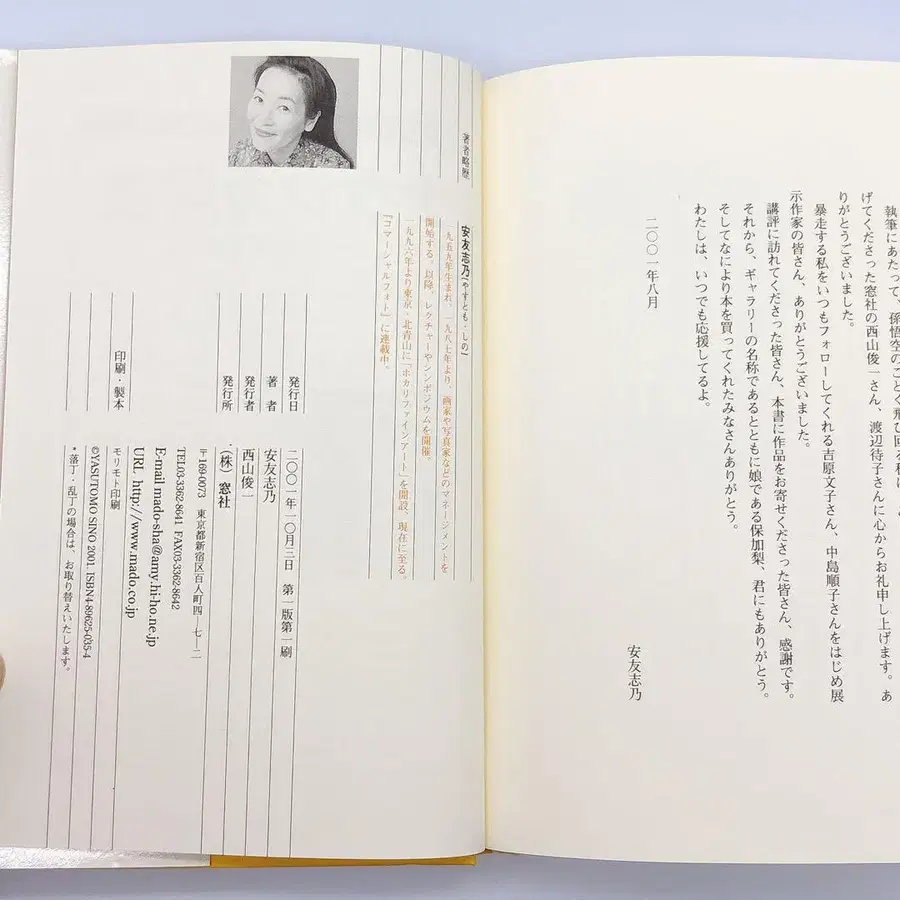 執筆にあたって、孫悟空のごとく飛び回る私に
げてくださった窓社の西山俊一さん、渡辺待子さんに心からお礼申し上げます。あ
りがとうございました。
暴走する私をいつもフォローしてくれる吉原文子さん、中島順子さんをはじめ展
示作家の皆さん、ありがとうございました。
講評に訪れてくださった皆さん、本書に作品をお寄せくださった皆さん、感謝です。
それから、ギャラリーの名称であるとともに娘である保加梨、君にもありがとう。
そしてなにより本を買ってくれたみなさんありがとう。
わたしは、いつでも応援してるよ。
二〇〇一年八月
安友志乃
著者略歴
安友志乃(やすとも・しの)
一九五九年生まれ。一九八七年より、画家や写真家などのマネージメントを
開始する。以降、レクチャーやシンポジウムを開催。
一九九六年より東京・北青山に「ポカリファインアート」を開設、現在に至る。
『コマーシャルフォト』に連載中。
発行日 二〇〇一年一〇月三日 第一版第一刷
著者 安友志乃
発行者 西山俊一
発行所 (株)窓社
〒169-0073 東京都新宿区百人町四―七―二
TEL03-3362-8641 FAX03-3362-8642
E-mail mado-sha@amy.hi-ho.ne.jp
URL http://www.mado.co.jp
印刷・製本 モリモト印刷
©YASUTOMO SINO 2001. ISBN4-89625-035-4
・落丁・乱丁の場合は、お取り替えいたします。